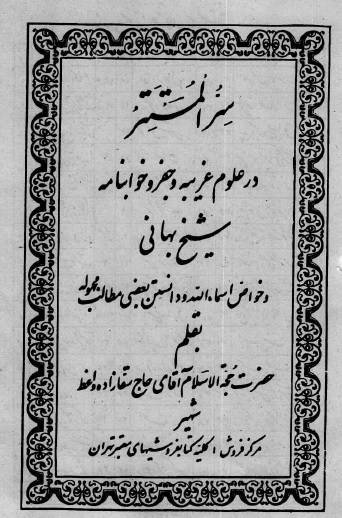 سِرُّ الْمُسْتَتِر
در علوم غریبه و جفر و خوابنامه
شیخ بهائی
و خواص اسماء الله و دانستن بعضی مطالب مجهوله
بقلم
حضرت حجة الاسلام آقای حاج سقازاده واعظ
شهیر
مرکز فروش : کلیه کتابفروشیهای معتبر تهران